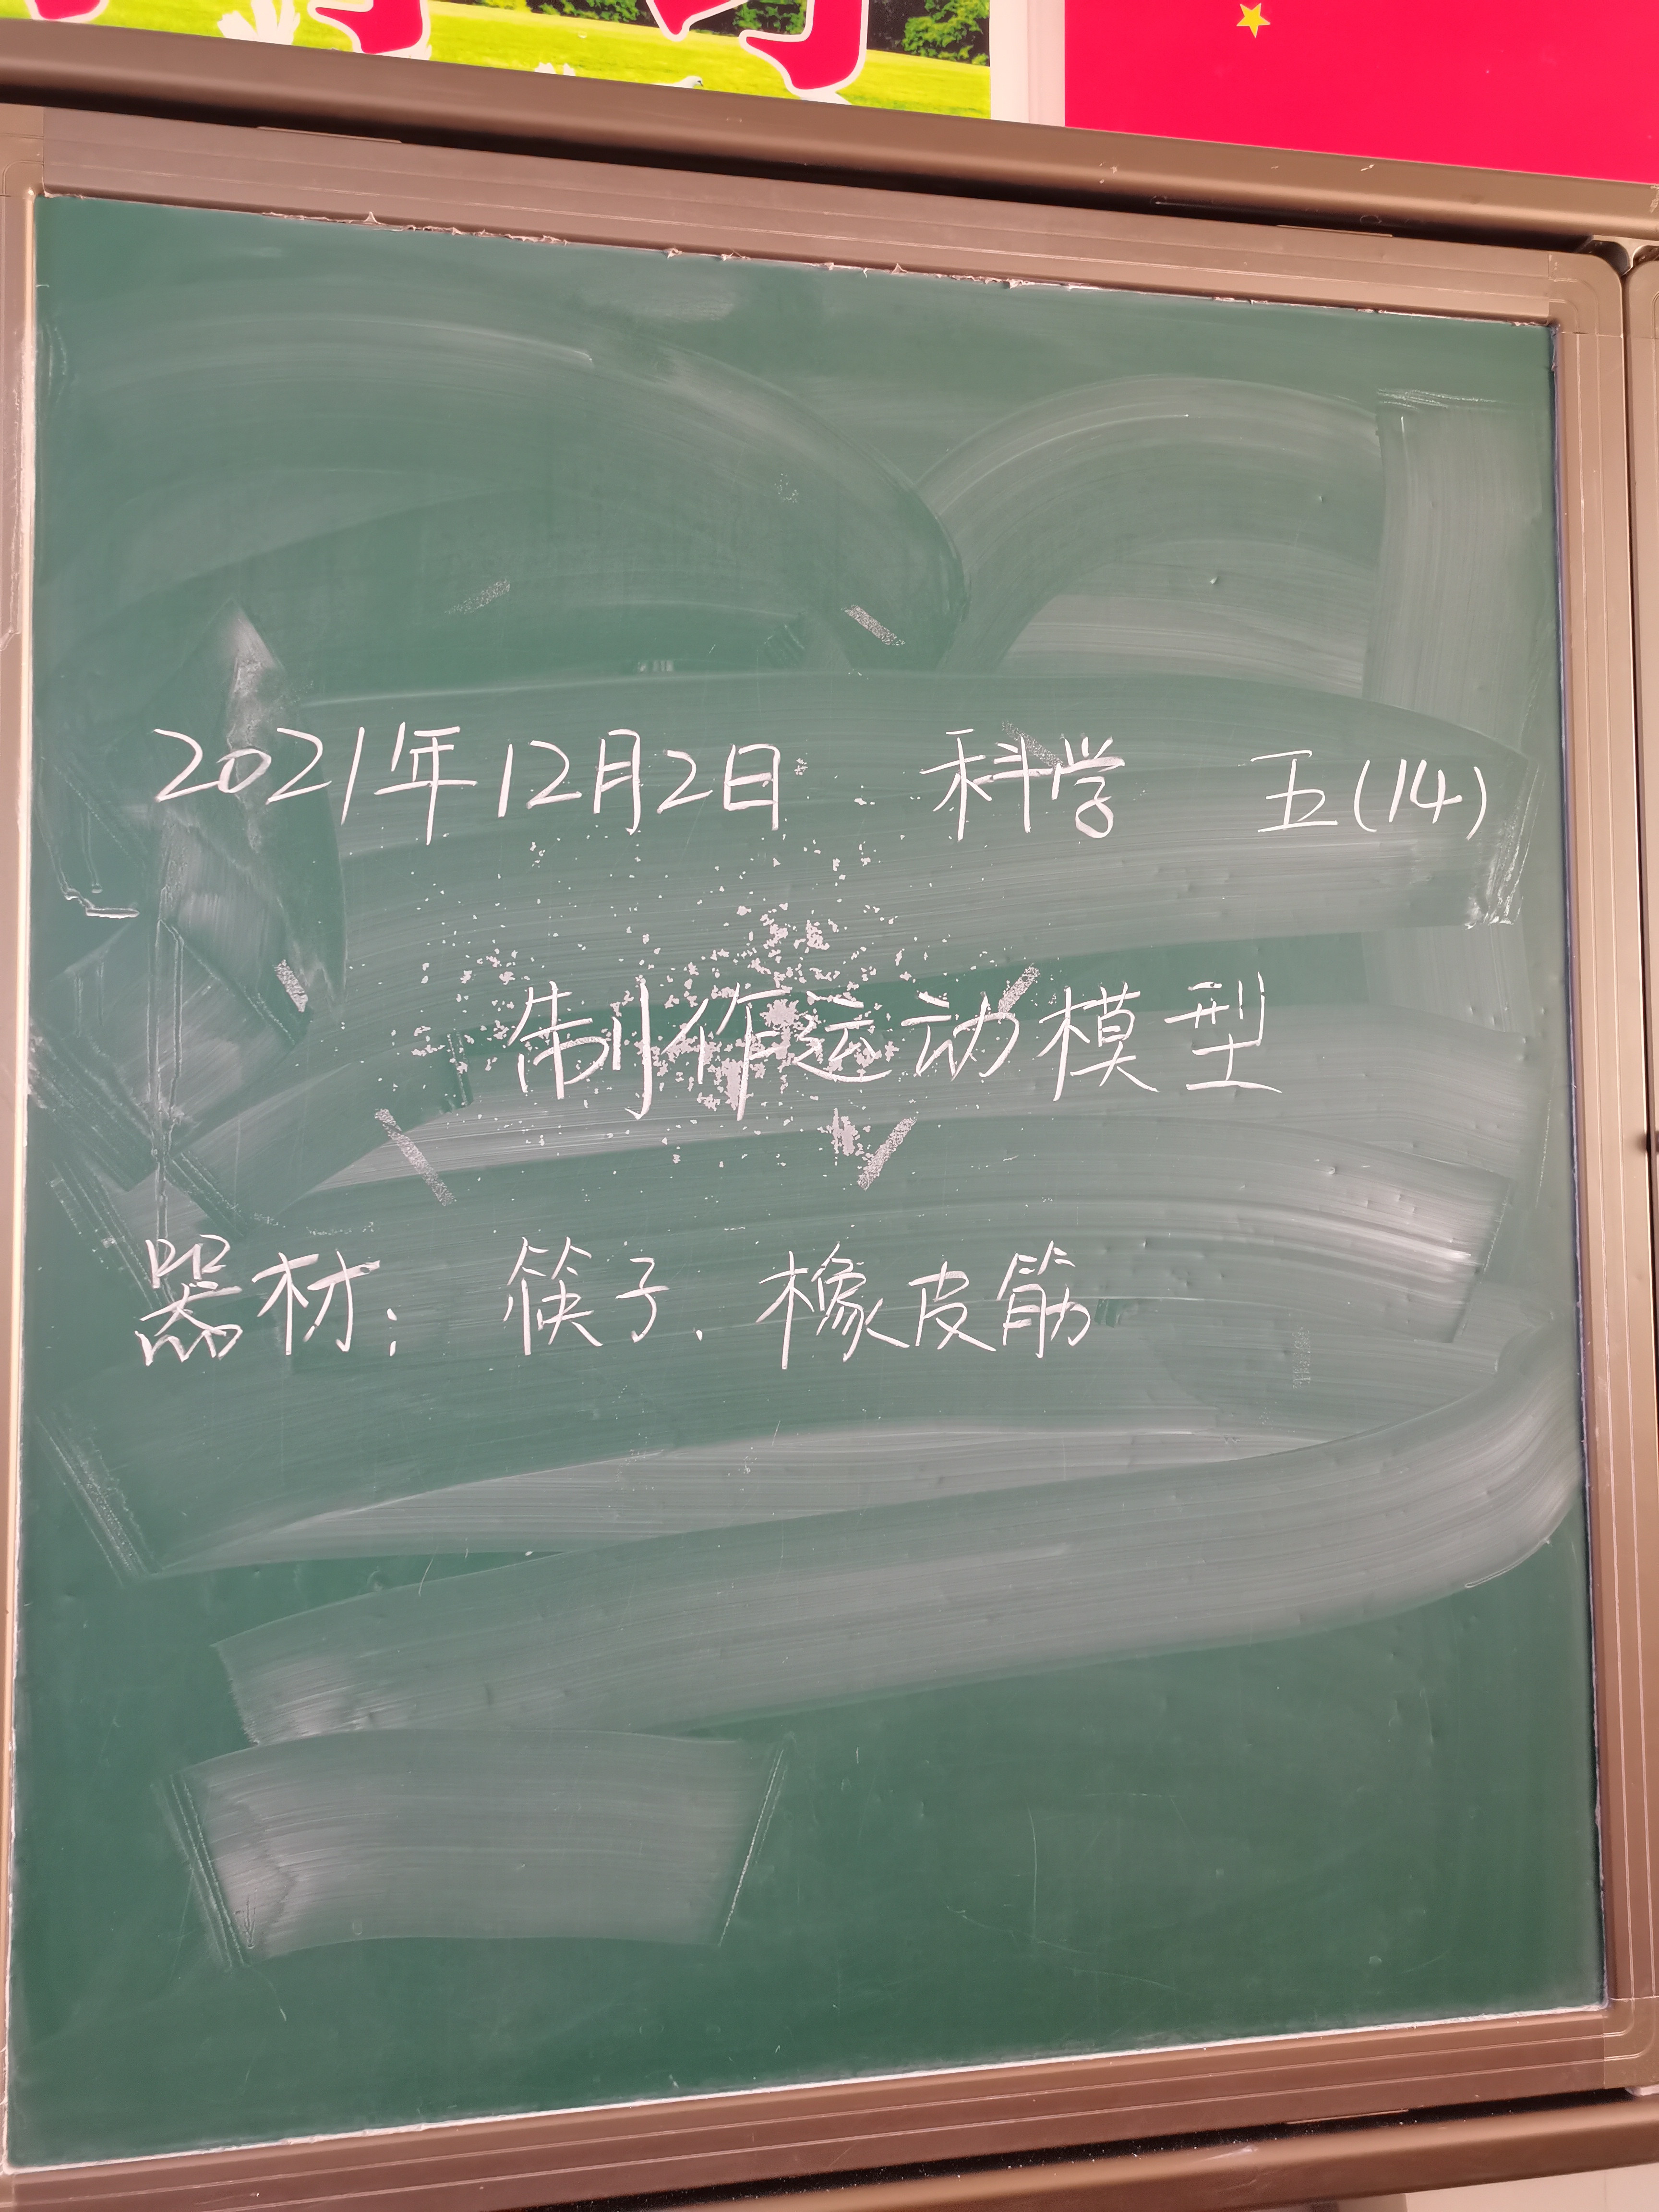 2021年12月2日 科学 五(14)
制作运动模型
器材：筷子、橡皮筋